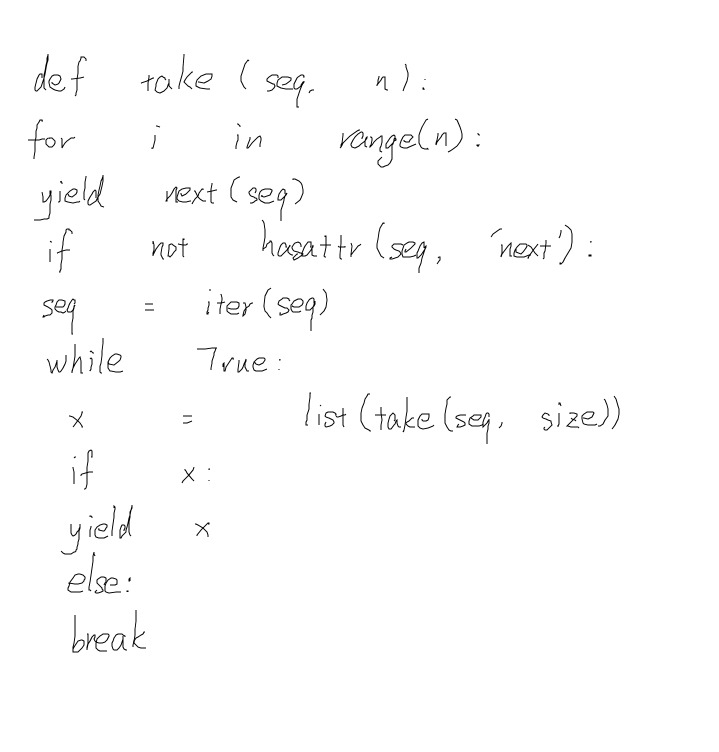 def take (seq, n):
for i in range(n):
yield next (seq)
if not hasattr (seq, 'next'):
seq = iter (seq)
while True:
x = list (take (seq, size))
if x:
yield x
else:
break